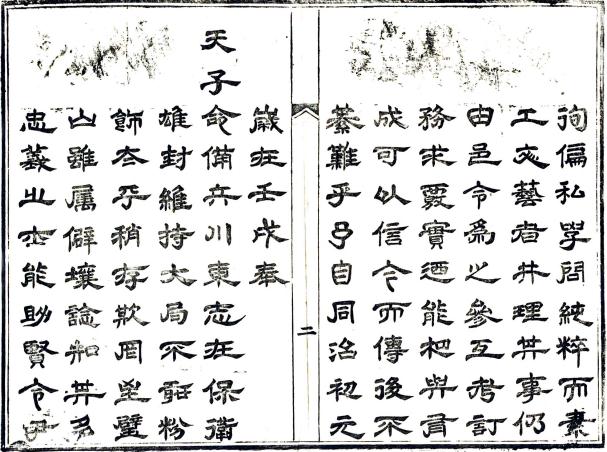 徇偏私學問純粹而素
工文藝者幷理其事仍
由邑令為之參互考訂
務求覈實迺能杷與有
成可以信今而傳後不
綦難乎予自同治初元
二
歲在壬戌奉
天子命備兵川東志在保衛
雄封維持大局不韶粉
飾太平稍存欺罔璧
山雖屬僻壤諗知其多
忠義之士能助賢令尹